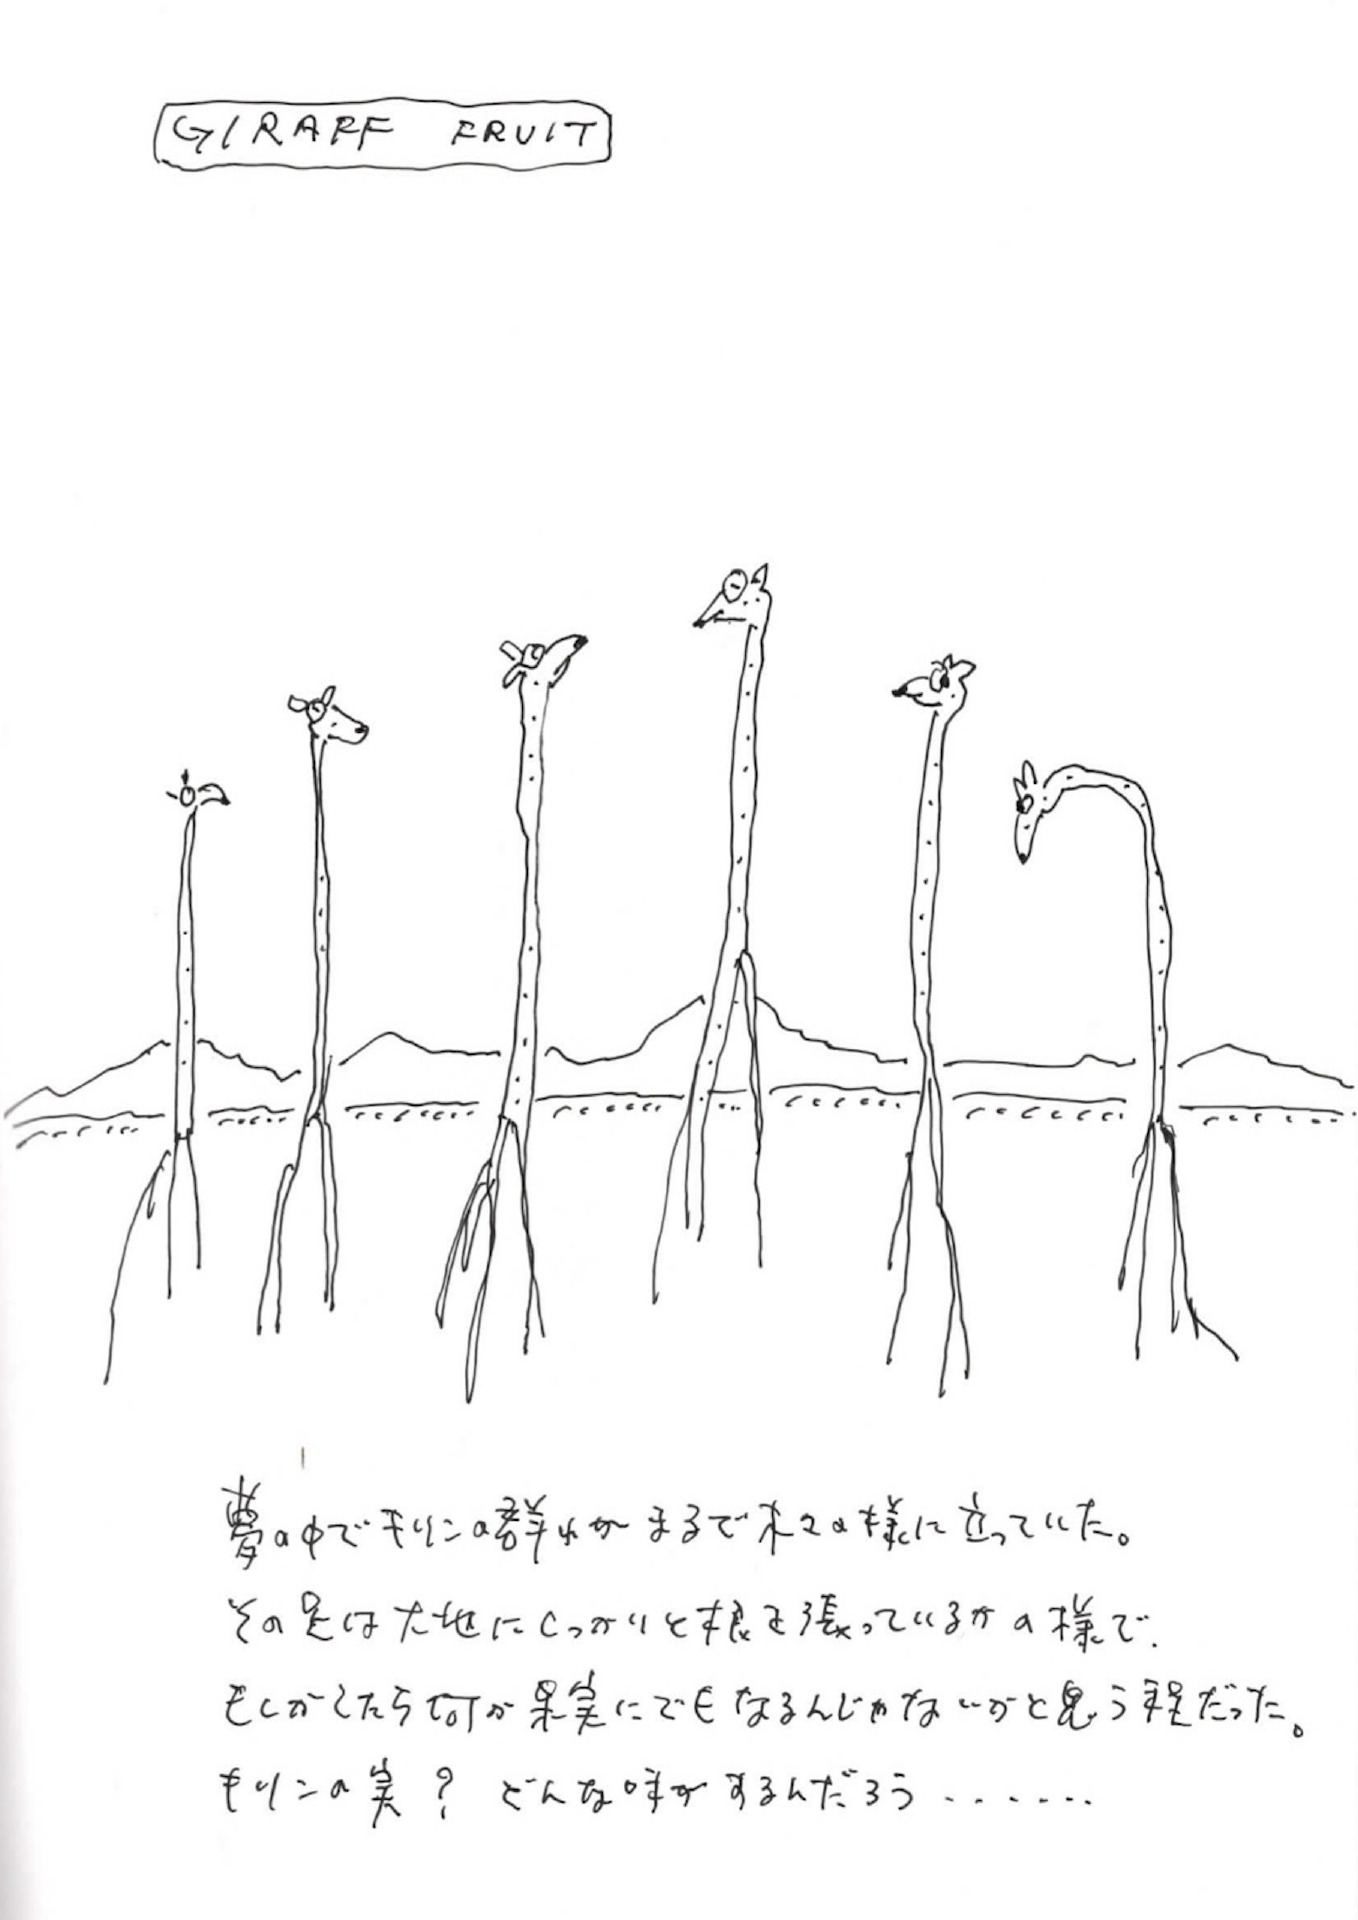 GIRAFF FRUIT
夢の中でキリンの群れがまるで木々の様に立っていた。
その足は大地にしっかりと根を張っているかの様で、
もしかしたら何か果実にでもなるんじゃないかと思う程だった。
キリンの実? どんな味がするんだろう.......